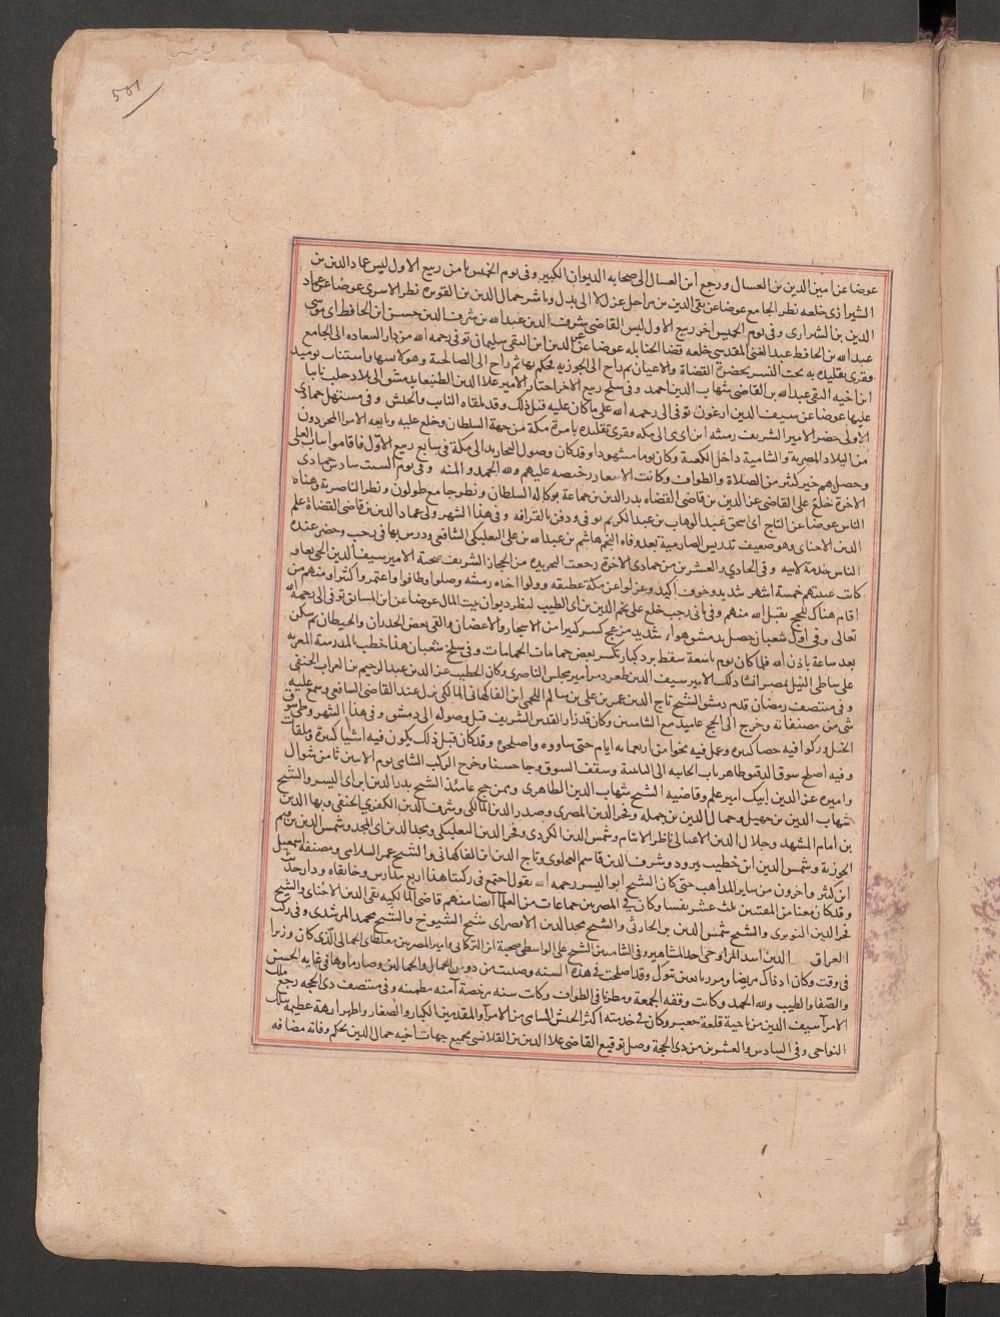 501
عوضا عن امين الدين بن العسال ورجع ابن العسال الى صحابه الديوان الكبير وفى يوم الخميس ثامن ربيع الاول لبس عماد الدين بن
الشيرازى خلعه نظر الجامع عوضا عن تقى الدين بن مراجل عزل لا الى بدل وباشر جمال الدين بن القويره نظر الاسرى عوضا عن عماد
الدين بن الشيرازى وفى يوم الخميس اخر ربيع الاول لبس القاضى شرف الدين عبد الله بن شرف الدين حسن ابن الحافظ ابى موسى
عبد الله بن الحافظ عبد الغنى المقدسى خلعه قضا الحنابله عوضا عن عز الدين ابن التقى سليمان توفى رحمه الله من دار السعاده الى الجامع
فقرى تقليده به تحت النسر بحضرة القضاة والاعيان ثم راح الى الجوزيه فحكم بها ثم راح الى الصالحية وهو لابسها واستناب يوميذ
ابن اخيه التقى عبد الله بن القاضى شهاب الدين احمد وفى سلخ ربيع الاخر اجتاز الامير علا الدين الطنبغا بدمشق الى بلاد حلب نايبا
عليها عوضا عن سيف الدين ارغون توفى الى رحمه الله على ما كان عليه قبل ذلك وقد تلقاه النايب والجيش وفى مستهل جمادى
الاولى حضر الامير الشريف رميثه ابن ابى نمى الى مكه فقرى تقليده بامرة مكة من جهة السلطان وخلع عليه وبايعه الامرا المجردون
من البلاد المصرية والشامية داخل الكعبة وكان يوما مشهودا وقد كان وصول التجاريد الى مكة فى سابع ربيع الاول فاقاموا بباب المعلى
وحصل هم خير كثير من الصلاة والطواف وكانت الاسعار رخيصه عليهم ولله الحمد والمنه وفى يوم السبت سادس جمادى
الاخرة خلع على القاضى عز الدين بن قاضى القضاه بدر الدين بن جماعة بوكاله السلطان ونظر جامع طولون ونظر الناصرية وهناه
الناس عوضا عن التاج ابى اسحق عبد الوهاب بن عبد الكريم توفى ودفن بالقرافه وفى هذا الشهر ولى عماد الدين بن قاضى القضاة علم
الدين الاخناى وهو ضعيف تدريس الصارمية بعد وفاه النجم هاشم بن عبد الله بن على البعلبكى الشافعى ودرس بها فى رجب وحضر عنده
الناس خدمة لابيه وفى الحادى والعشرين من جمادى الاخرة رجعت التجريده من الحجاز الشريف صحبة الامير سيف الدين الجى بغا و
كانت غيبتهم خمسة اشهر شديد وخوف اكيد وعزلوا عن مكة عطيفه وولوا اخاه رميثه وصلوا وطافوا واعتمروا اكثر ومنهم من
اقام هناك للحج تقبل الله منهم وفى ثانى رجب خلع على نجم الدين بن ابى الطيب لنظر ديوان بيت المال عوضا عن ابن المسابق توفى الى رحمة الله
تعالى وفى اول شعبان حصل بدمشق هواء شديد مزعج كسر كثيرا من الاشجار والاغصان والقى بعض الجدران والحيطان ثم سكن
بعد ساعة باذن الله فلما كان يوم تاسعة سقط برد كبار تكسر بعض جامات الحمامات وفى سلخ شعبان هذا خطب بالمدرسة المعزيه
على شاطى النيل بمصر انشا ذلك الامير سيف الدين طغردمر امير مجلس الناصرى وكان الخطيب عز الدين عبد الرحيم بن الفرات الحنفى
وفى منتصف رمضان قدم دمشق الشيخ تاج الدين عمر بن على بن سالم اللخمى ابن الفاكهانى المالكى نزل عند القاضى الشافعى وسمع عليه
شى من مصنفاته وخرج الى الحج عاميد مع الشاميين وكان قد زار القدس الشريف قبل وصوله الى دمشق وفى هذا الشهر وطى سوق
الخيل وركوا فيه حصا كثيره وعمل فيه نحوا من اربعمايه ايام حتى ساووه واصلحوه وقد كان قبل ذلك يكون فيه اشيا كثيرة وملقات
وفيه اصلح سوق الدقيق ظاهر باب الجابيه الى الثابتية وسقف السوق وجا حسنا وخرج الركب الشامى يوم الاثنين ثامن شوال
واميره عز الدين ايبك امير علم وقاضيه الشيخ شهاب الدين الظاهرى وممن حج عاميذ الشيخ بدر الدين ابن ابى اليسر والشيخ
شهاب الدين بن جهبل وجمال الدين بن جمله وفخر الدين المصرى وصدر الدين المالكى وشرف الدين الكفرى الحنفى وبها الدين
بن امام المشهد وجلال الدين الاعيالى ناظر الايتام وشمس الدين الكردى وفخر الدين البعلبكى ومجد الدين ابى المجد وشمس الدين بن قيم
الجوزية وشمس الدين ابن خطيب يبرود وشرف الدين قاسم العجلونى وتاج الدين ابن الفاكهانى والشيخ عمر السلامى ومصنفه اسمعيل
ابن كثير واخرون من ساير المذاهب حتى كان الشيخ ابو اليسر رحمه الله يقول اجتمع فى ركبنا هذا اربع مدارس وخانقاه ودار حديث
وقد كان معنا من المفتيين ثلث عشر نفسا وكان فى المصريين جماعات من العلما ايضا منهم قاضى المالكيه تقى الدين الاخناى والشيخ
فخر الدين النويرى والشيخ شمس الدين بن الحارثى والشيخ مجد الدين الاقصراى شيخ الشيوخ والشيخ محمد المرشدى وفى ركب
العراق الدين اسد المراوحى احد المشاهير وفى الشاميين الشيخ على الواسطى صحبة ابن التركمانى وامير المصريين مغلطاى الجمالى الذى كان وزيرا
فى وقت وكان اذ ذاك مريضا ومررنا بعين تبوك وقد اصلحت فى هذه السنه وصينت من دوس الجمال والجمالين وصار ماوها فى غايه الحسن
والصفا والطيب ولله الحمد وكانت وقفه الجمعة ومطرنا فى الطواف وكانت سنه مرخصة آمنه مطمينه وفى منتصف ذى الحجه رجع ملك
الامرا سيف الدين من ناحية قلعة جعبر وكان فى خدمته اكثر الجيش الشامى من الامرا والمقدمين الكبار والصغار واظهر ابهة عظيمه بتلك
النواحى وفى السادس والعشرين من ذى الحجة وصل توقيع القاضى علا الدين بن القلانسى بجميع جهات اخيه جمال الدين بحكم وفاته مضافه